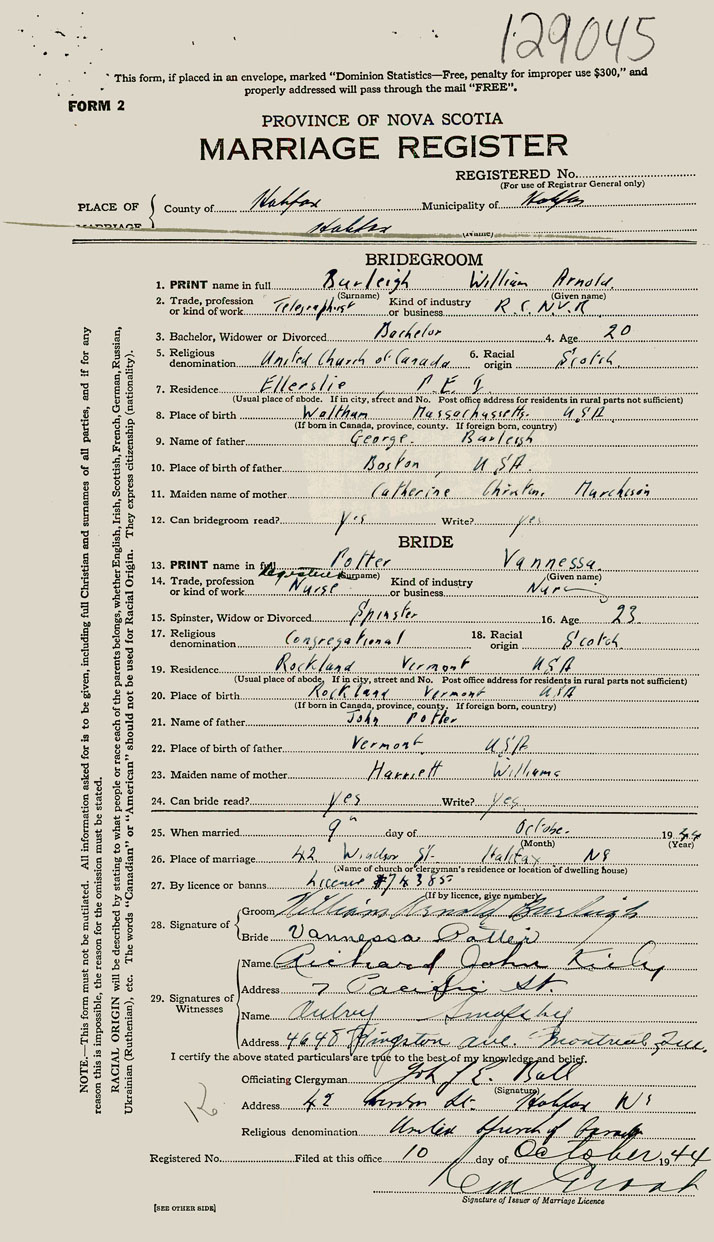 129045
This form, if placed in an envelope, marked "Dominion Statistics—Free, penalty for improper use $300," and
properly addressed will pass through the mail "FREE".
FORM 2
PROVINCE OF NOVA SCOTIA
MARRIAGE REGISTER
REGISTERED No.
(For use of Registrar General only)
PLACE OF MARRIAGE
County of Halifax Municipality of Halifax
Halifax
(Name)
BRIDEGROOM
1. PRINT name in full Burleigh William Arnold
(Surname) (Given name)
2. Trade, profession or kind of work Telegraphist Kind of industry or business R.C.N.V.R
3. Bachelor, Widower or Divorced Bachelor 4. Age 20
5. Religious denomination United Church of Canada 6. Racial origin Scotch
7. Residence Ellerslie P E I
(Usual place of abode. If in city, street and No. Post office address for residents in rural parts not sufficient)
8. Place of birth Waltham Massachusetts USA
(If born in Canada, province, county. If foreign born, country)
9. Name of father George Burleigh
10. Place of birth of father Boston USA
11. Maiden name of mother Catherine Christine Murchison
12. Can bridegroom read? yes Write? yes
BRIDE
13. PRINT name in full Potter Vannessa
(Surname) (Given name)
14. Trade, profession or kind of work Registered Nurse Kind of industry or business Nurse
15. Spinster, Widow or Divorced Spinster 16. Age 23
17. Religious denomination Congregational 18. Racial origin Scotch
19. Residence Rockland Vermont USA
(Usual place of abode. If in city, street and No. Post office address for residents in rural parts not sufficient)
20. Place of birth Rockland Vermont USA
(If born in Canada, province, county. If foreign born, country)
21. Name of father John Potter
22. Place of birth of father Vermont USA
23. Maiden name of mother Harriett Williams
24. Can bride read? yes Write? yes
25. When married 9th day of October 1944
(Month) (Year)
26. Place of marriage 42 Windsor St. Halifax NS
(Name of church or clergyman's residence or location of dwelling house)
27. By licence or banns Licence #74385
(If by licence, give number)
28. Signature of Groom William Arnold Burleigh
Bride Vannessa Potter
29. Signatures of Witnesses
Name Richard John Kirby
Address 7 Pacific St.
Name Aubry
Address 4648 Kingston ave Montreal Que.
I certify the above stated particulars are true to the best of my knowledge and belief.
Officiating Clergyman Ball
(Signature)
Address 42 Windsor St. Halifax NS
Religious denomination United Church of Canada
Registered No. Filed at this office 10 day of October 1944
Signature of Issuer of Marriage Licence
[SEE OTHER SIDE]
NOTE.—This form must not be mutilated. All information asked for is to be given, including full Christian and surnames of all parties, and if for any
reason this is impossible, the reason for the omission must be stated.
RACIAL ORIGIN will be described by stating to what people or race each of the parents belongs, whether English, Irish, Scottish, French, German, Russian,
Ukrainian (Ruthenian), etc. The words "Canadian" or "American" should not be used for Racial Origin. They express citizenship (nationality).